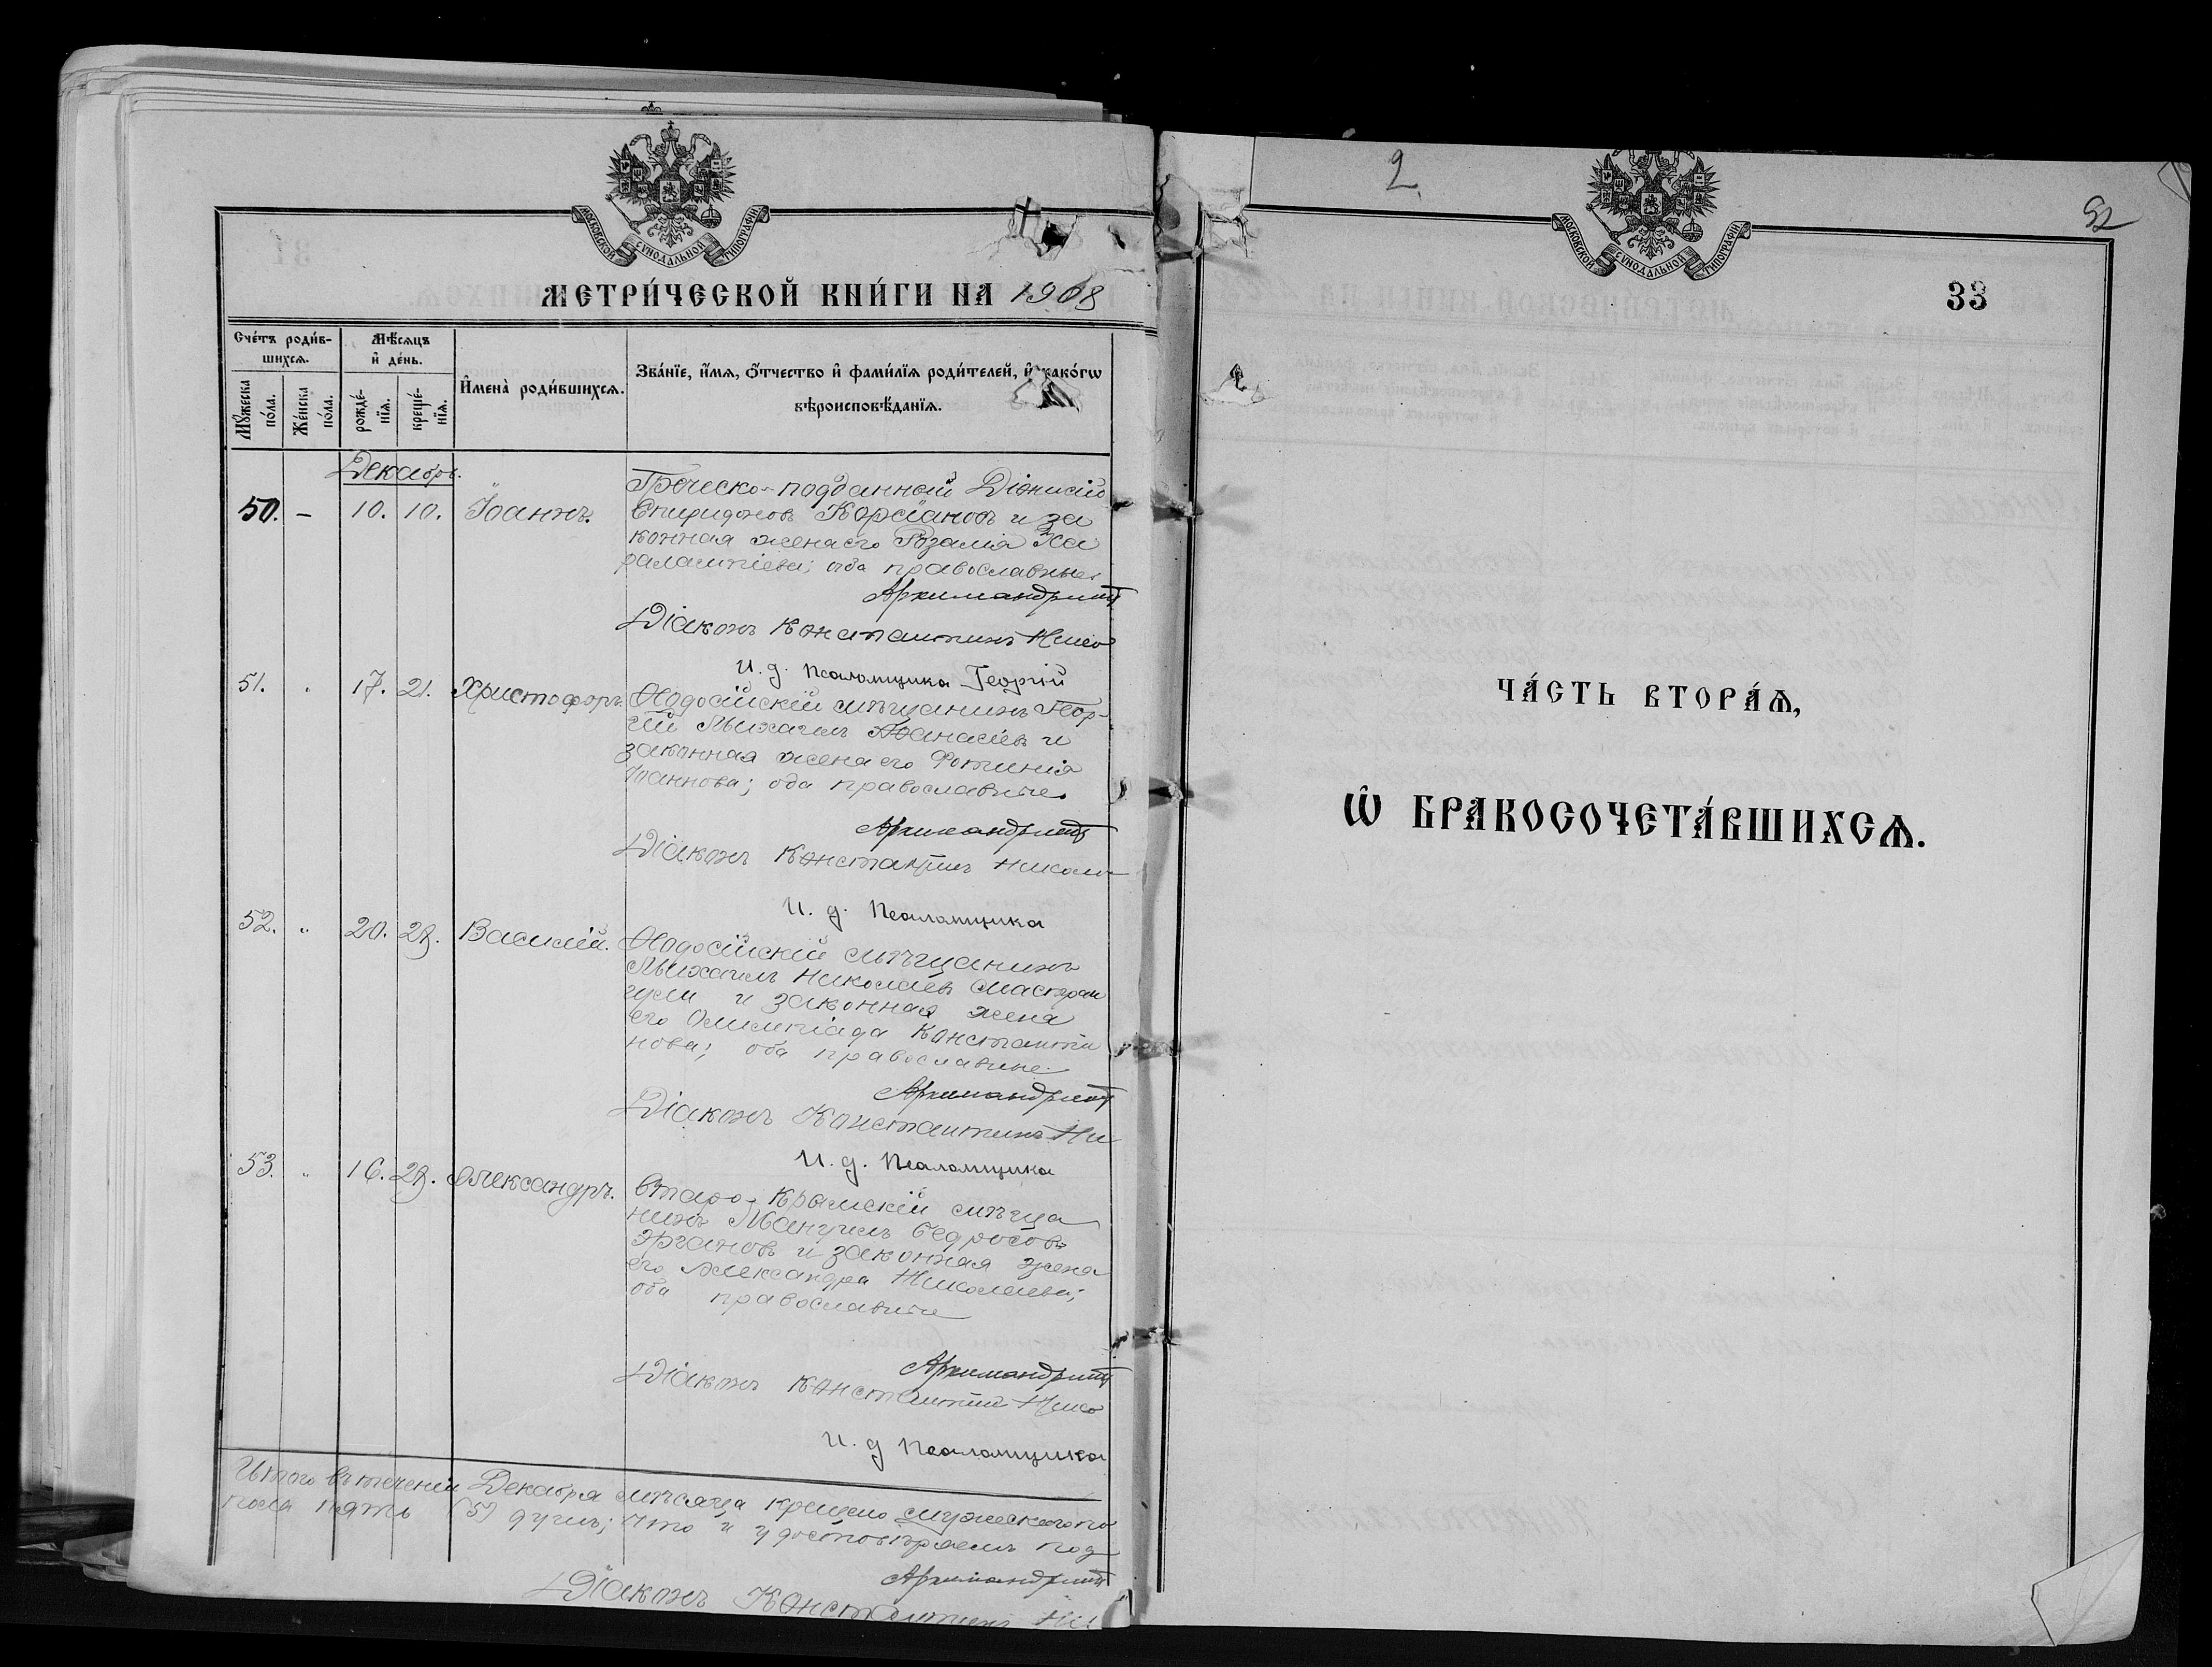 МОСКОВСКОЙ СѴНОДАЛЬНОЙ ТИПОГРАФІИ
МЕТРИ́ЧЕСКОЙ КНИ́ГИ НА 1908
Сче́тъ роди́в-
шихсѧ.
Мꙋ́жеска
по́ла.
Же́нска
по́ла.
Мѣ́сѧцъ
и҆ де́нь.
рожде́-
нїѧ.
креще́-
нїѧ.
И҆мена̀ роди́вшихсѧ.
Зва́нїе, и҆́мѧ, ѻ҆́тчество и҆ фами́лїѧ роди́телей, и҆ како́гѡ
вѣроисповѣ́данїѧ.
Декабрь.
50. – 10. 10. Іоаннъ.
Греческо-подданный Діонисій
Спиридоновъ и за
конная жена его Розалія Ха
ралампіева; оба православные.
Архимандритъ
Діаконъ Константинъ Нико
И. д. Псаломщика Георгій
51. " 17. 21. Христофоръ.
Ѳеодосійскій мѣщанинъ Геор-
гій Михаилъ Аѳанасіевъ и
законная жена его Фотинія
Іоаннова; оба православные.
Архимандритъ
Діаконъ Константинъ Никола
И. д. Псаломщика
52. " 20. 28. Василій.
Ѳеодосійскій мѣщанинъ
Михаилъ Николаевъ
и законная жена
его Олимпіада Константи
нова; оба православные.
Архимандритъ
Діаконъ Константинъ Ни
И. д. Псаломщика
53. " 16. 28. Александръ.
Старо-Крымскій мѣща
нинъ Мануилъ Ѳедросовъ
и законная жена
его Александра Николаева;
оба православные
Архимандритъ
Діаконъ Константинъ Нико
И. д Псаломщика
Итого въ теченіи Декабря мѣсяца крещено мужескаго по
пола пять (5) душъ; что и удостовѣряемъ под
Архимандритъ
Діаконъ Константинъ Ни
2
52
МОСКОВСКОЙ СѴНОДАЛЬНОЙ ТИПОГРАФІИ
33
ЧА́СТЬ ВТОРА́Ѧ,
Ѽ БРАКОСОЧЕТА́ВШИХСѦ.